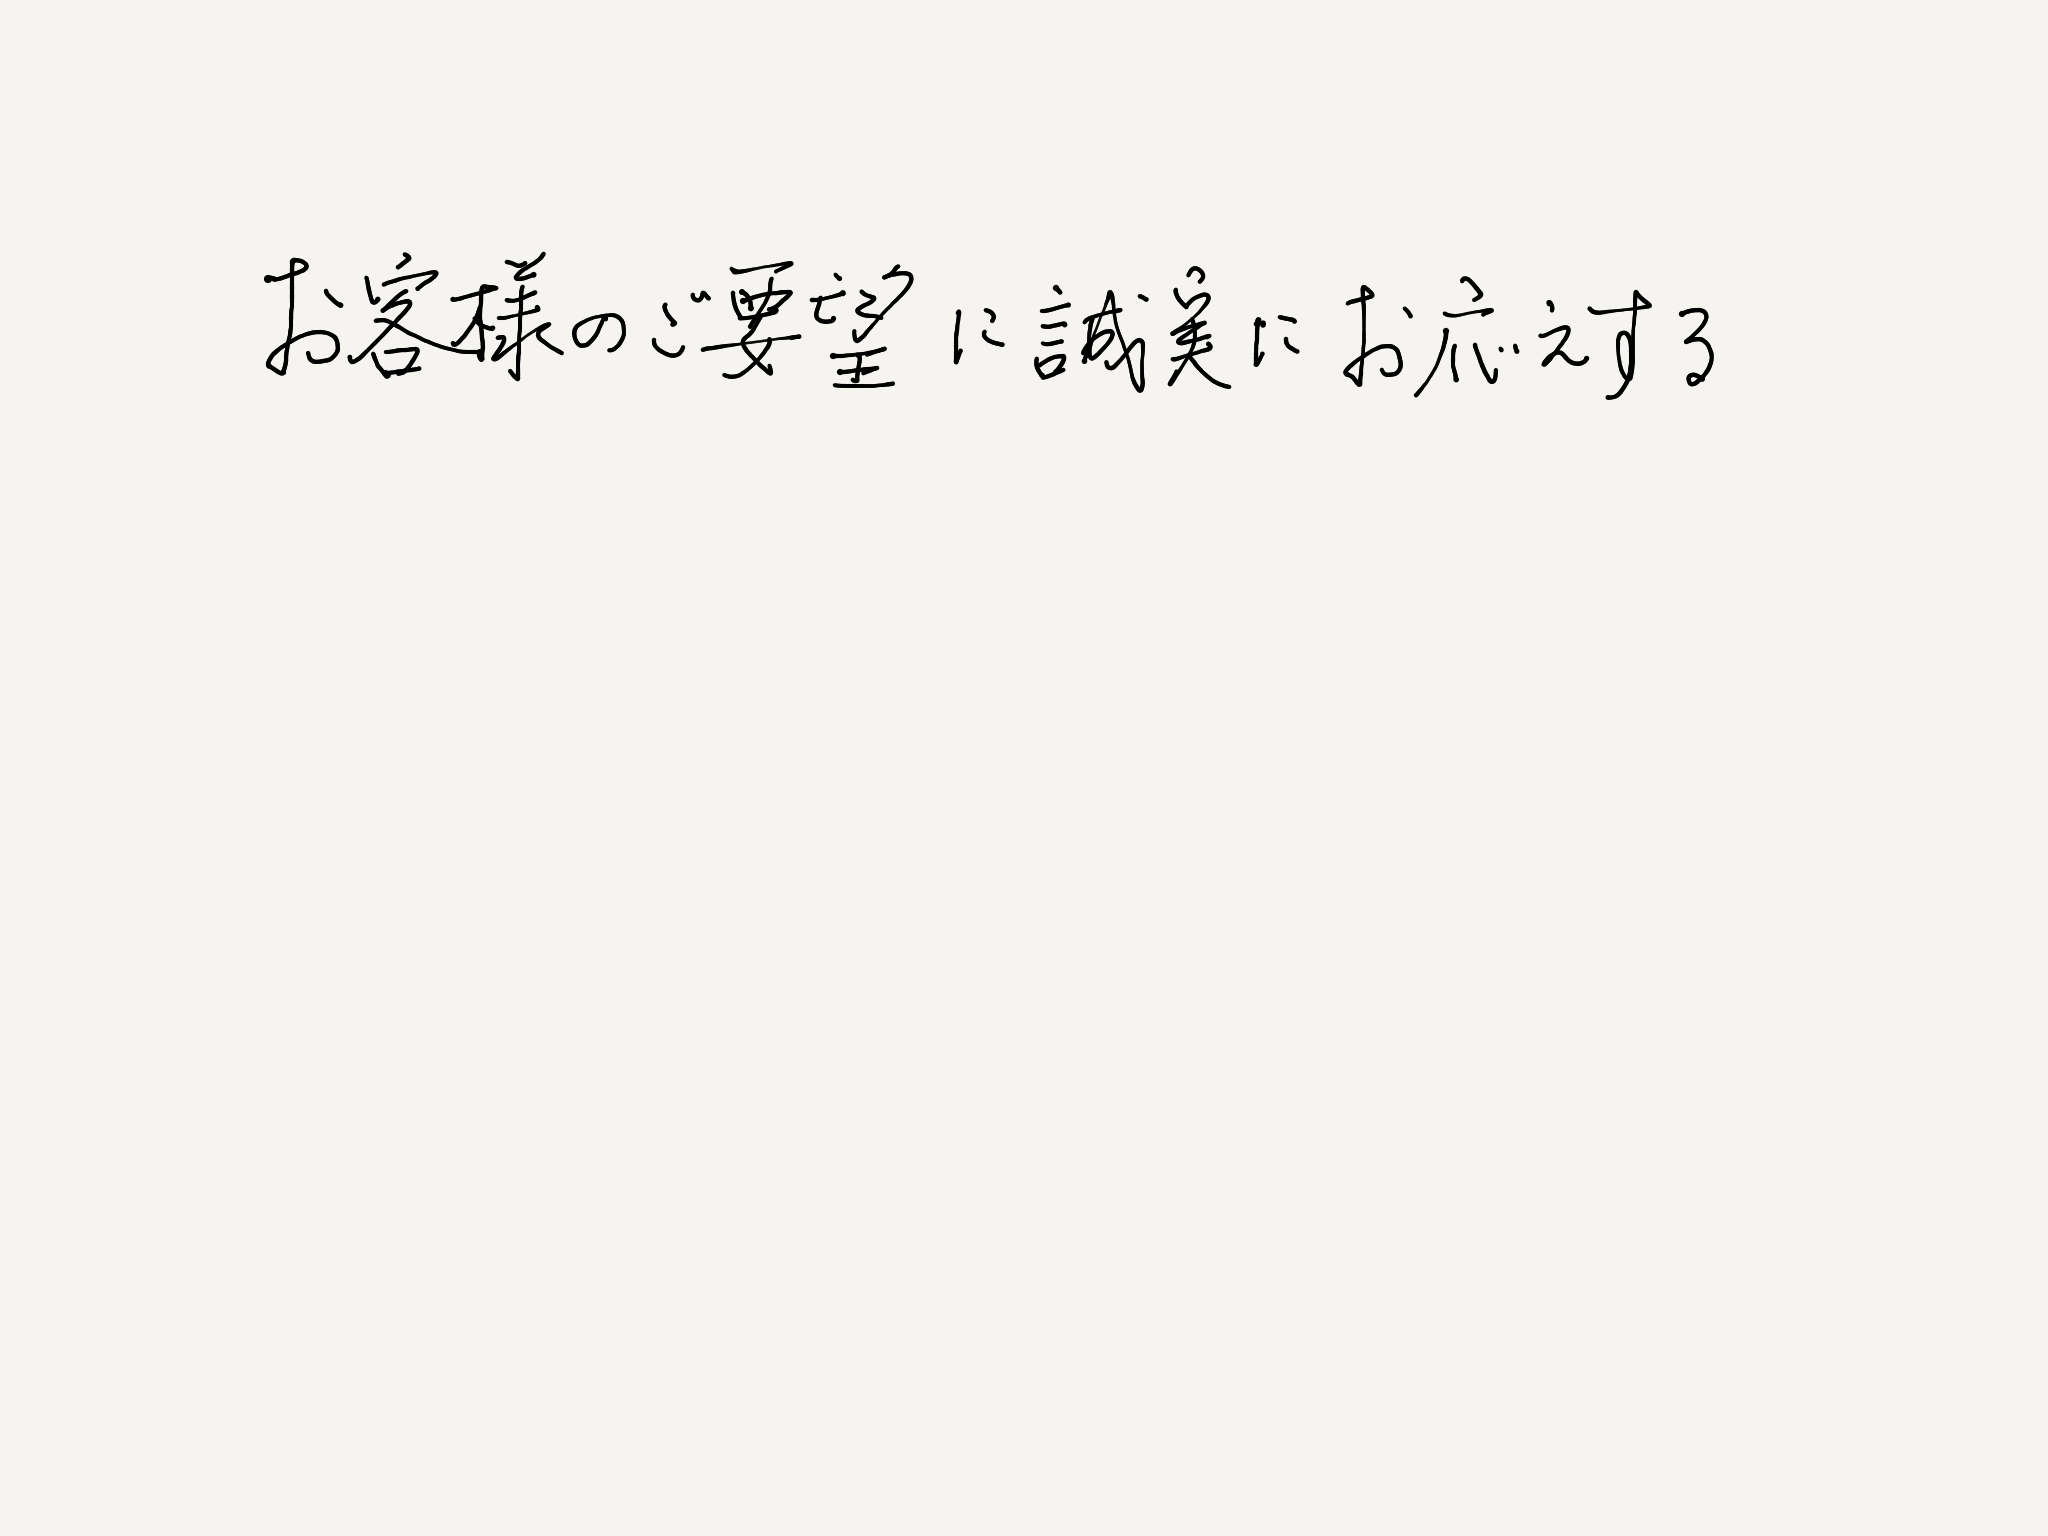 お客様のご要望に誠実にお応えする